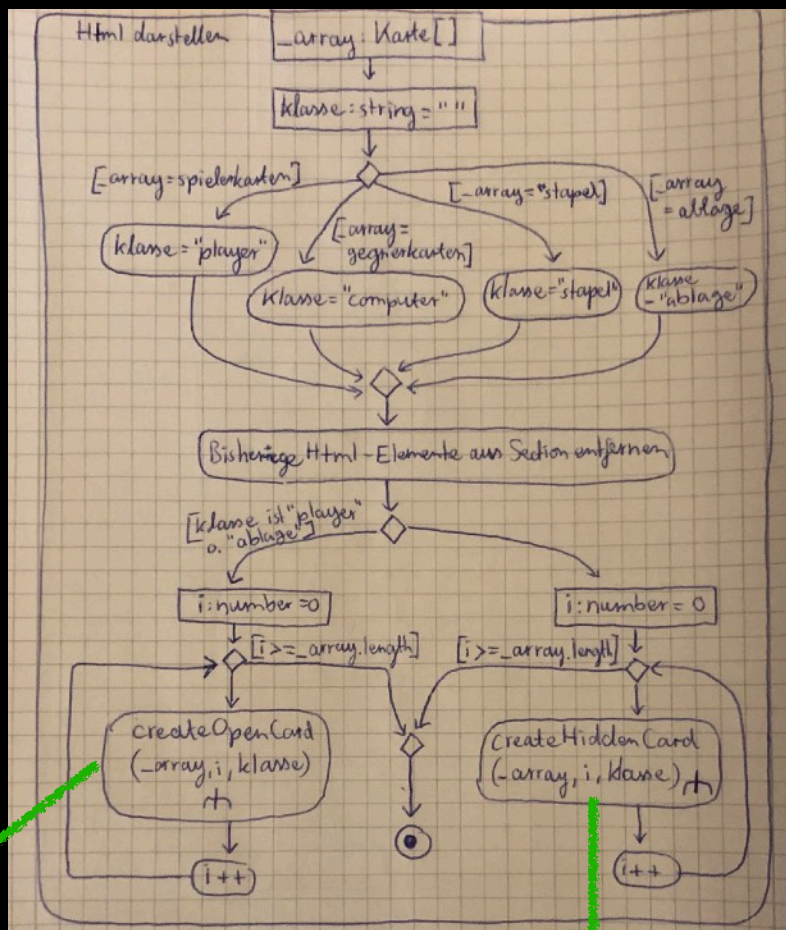 Html darstellen
_array: Karte[]
klasse: string = " "
[_array=spielerkarten]
[_array="stapel]
[_array
=ablage]
klasse="player"
[_array=
gegnerkarten]
klasse="computer"
klasse="stapel"
klasse
="ablage"
Bisherige Html-Elemente aus Section entfernen
[klasse ist "player"
o. "ablage"]
i:number=0
i:number = 0
[i>=_array.length]
[i>=_array.length]
createOpenCard
(_array, i, klasse)
createHiddenCard
(_array, i, klasse)
i++
i++